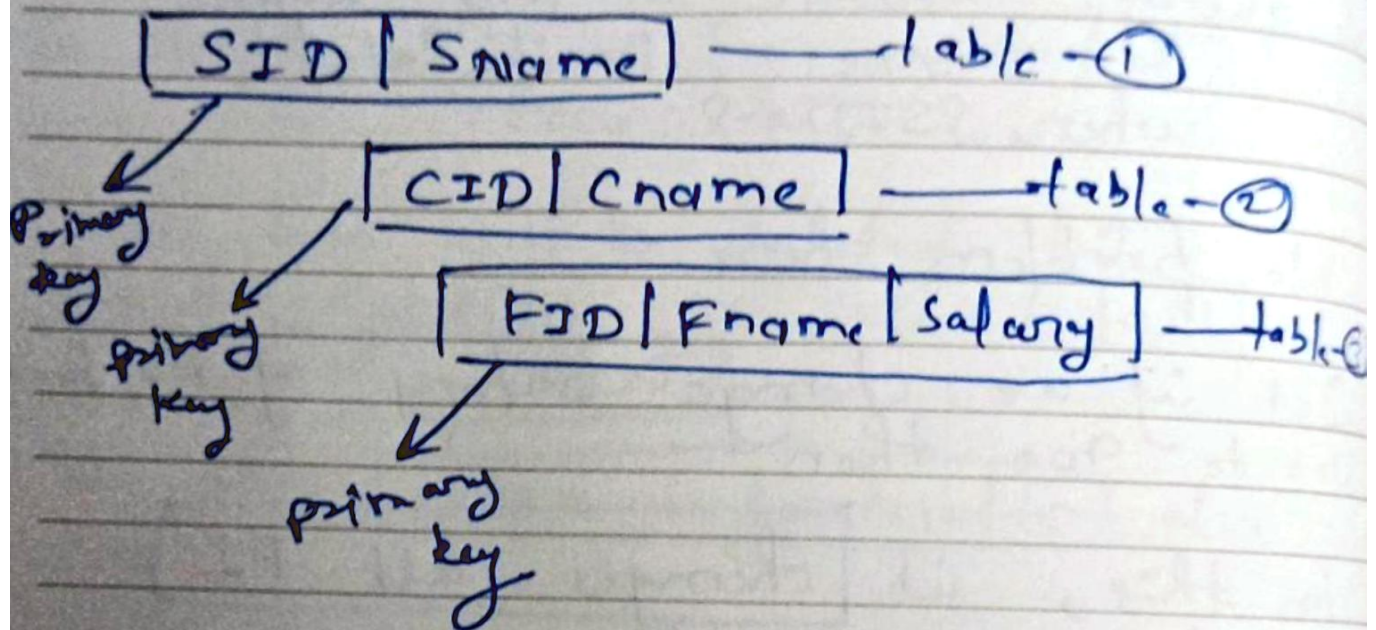 SID | Sname — table - ①
Primary key
CID | Cname — table - ②
primary key
FID | Fname | Salary — table - ③
primary key